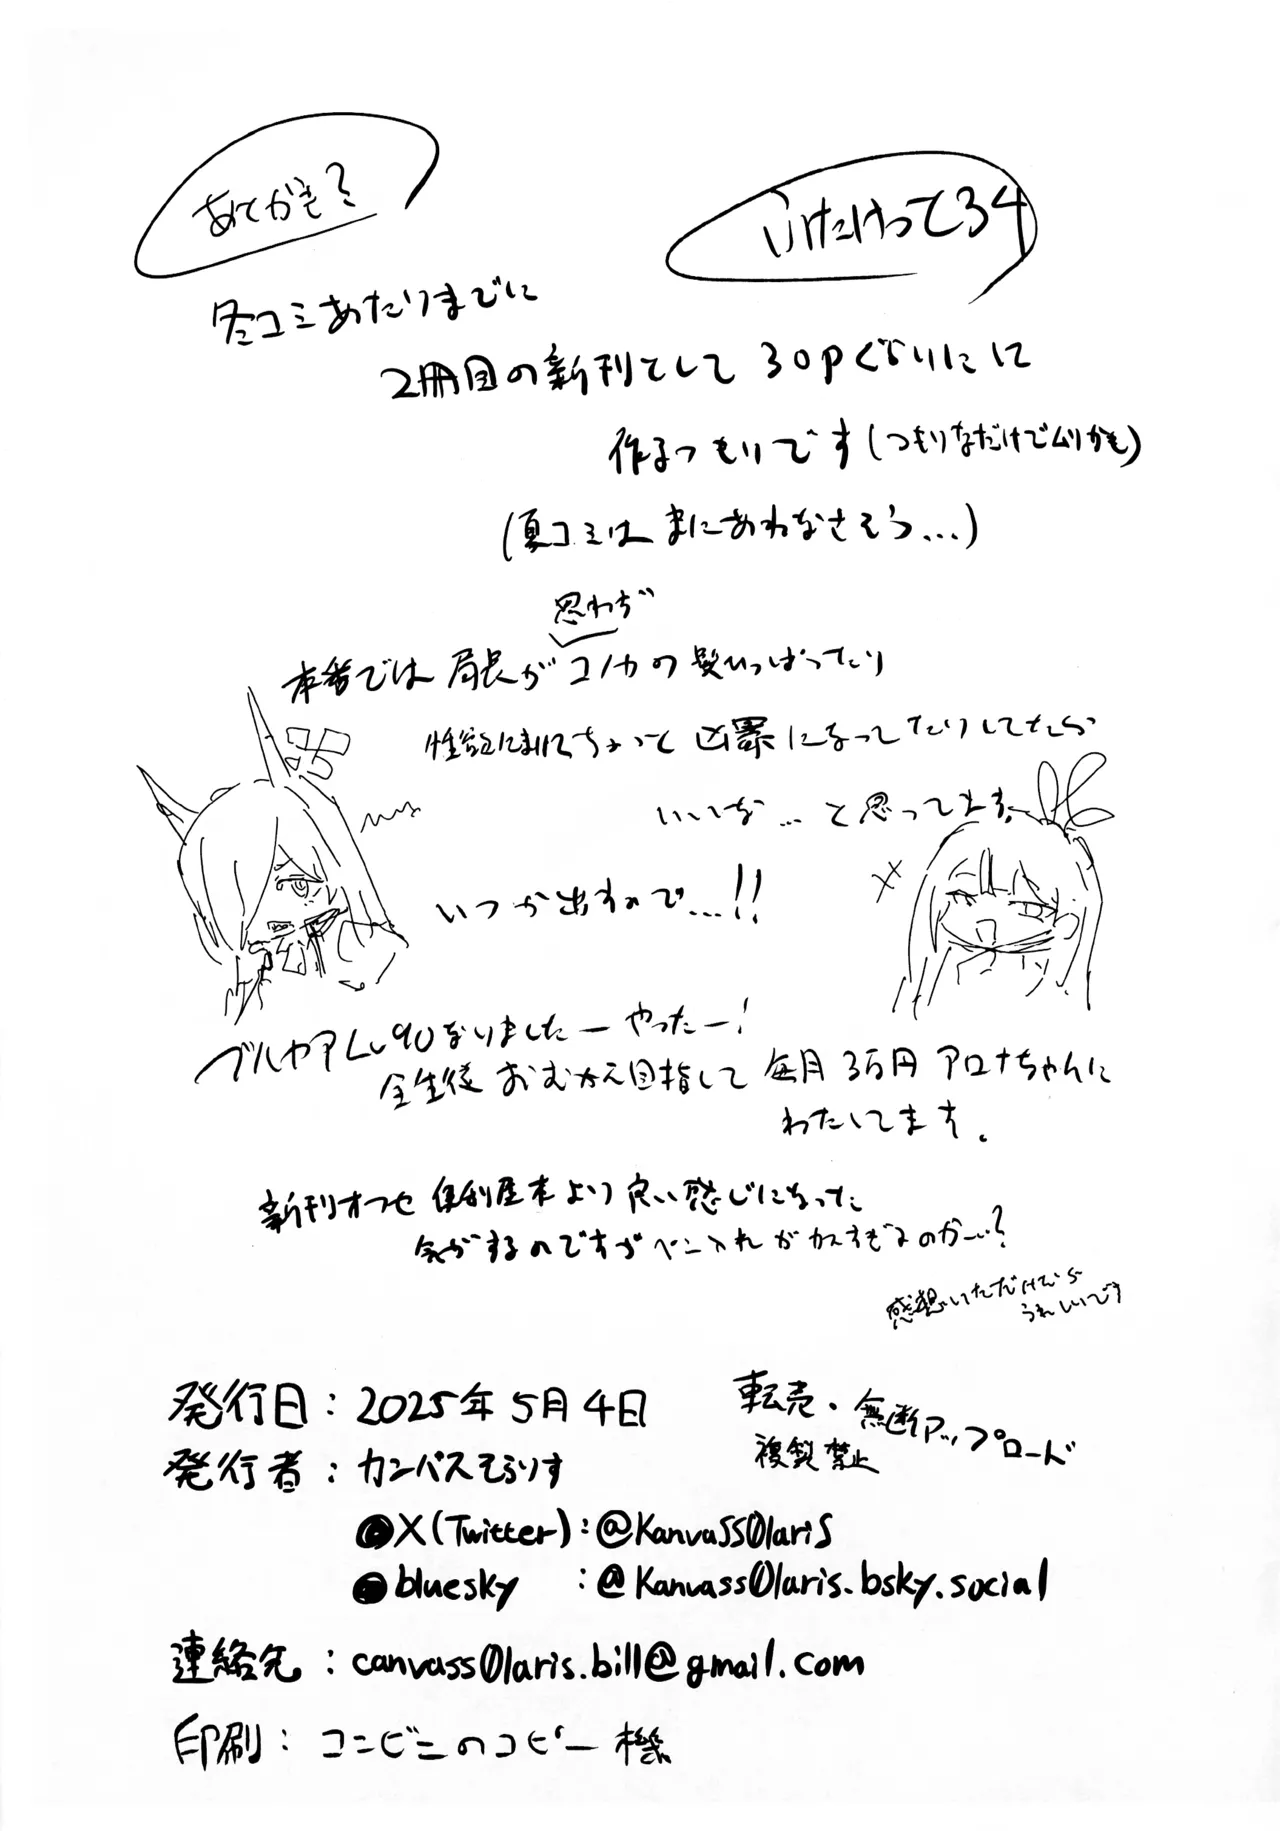 あとがき?
いけたけって34
冬コミあたりまでに
2冊目の新刊として30Pぐらいにして
作るつもりです(つもりなだけでムリかも)
(夏コミはまにあわなさそう…)
思わず
本番では局長がコノカの髪ひっぱったり
性欲にまけてちょっと凶暴になってたりしてたら
いいな…と思ってます
いつか出すので…!!
ブルカアLv90なりましたーやったー!
全生徒おむかえ目指して毎月3万円アロナちゃんに
わたしてます。
新刊オフセ 便利屋本より良い感じになった
気がするのですがペン入れがカスすぎるのかーい?
感想いただけたら
うれしいです
発行日:2025年5月4日
転売・無断アップロード
複製禁止
発行者:カンバスそらりす
●X(Twitter):@KanvaSS0lariS
●bluesky :@Kanvass0laris.bsky.social
連絡先:canvass0laris.bill@gmail.com
印刷:コンビニのコピー機